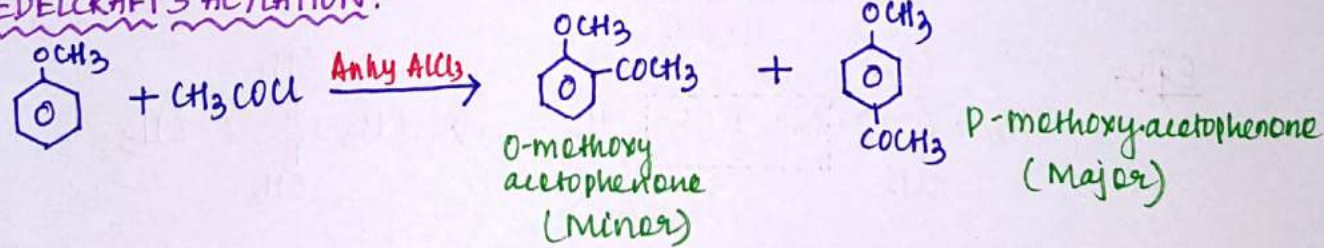 EDELCRAFT'S ACYLATION:
OCH3
+ CH3COCl
Anhy AlCl3
OCH3
COCH3
+
OCH3
COCH3
O-methoxy
acetophenone
(Minor)
P-methoxy.acetophenone
(Major)